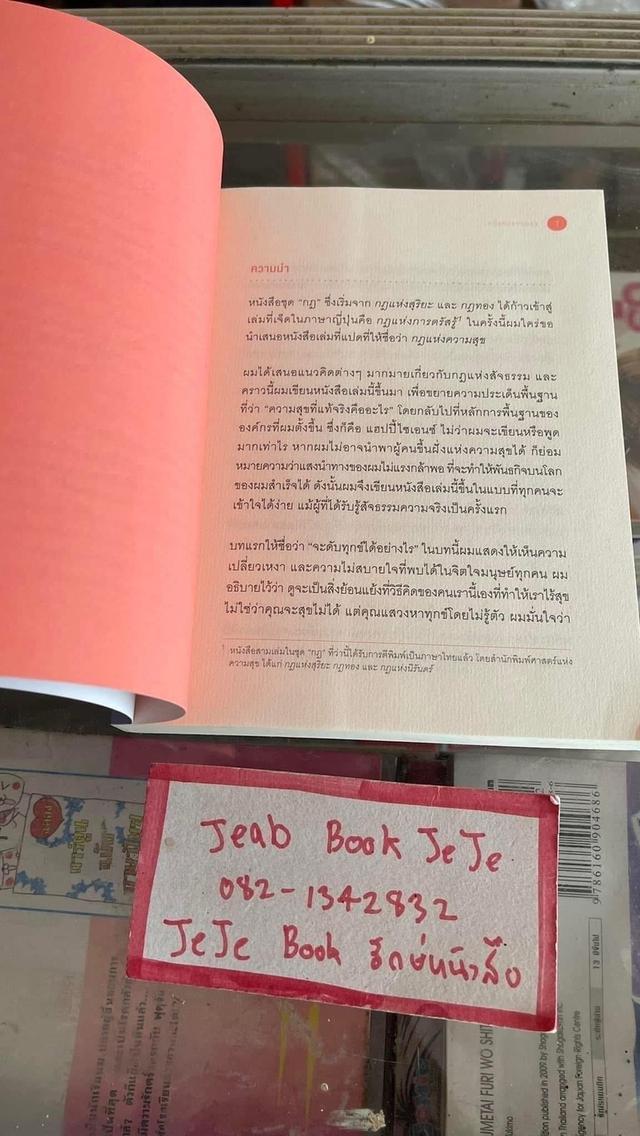 1
ความนำ
หนังสือชุด “กฎ” ซึ่งเริ่มจาก กฎแห่งสุริยะ และ กฎทอง ได้ก้าวเข้าสู่
เล่มที่เจ็ดในภาษาญี่ปุ่นคือ กฎแห่งการตรัสรู้¹ ในครั้งนี้ผมใคร่ขอ
นำเสนอหนังสือเล่มที่แปดที่ให้ชื่อว่า กฎแห่งความสุข
ผมได้เสนอแนวคิดต่างๆ มากมายเกี่ยวกับกฎแห่งสัจธรรม และ
คราวนี้ผมเขียนหนังสือเล่มนี้ขึ้นมา เพื่อขยายความประเด็นพื้นฐาน
ที่ว่า “ความสุขที่แท้จริงคืออะไร” โดยกลับไปที่หลักการพื้นฐานของ
องค์กรที่ผมตั้งขึ้น ซึ่งก็คือ แฮปปี้ไซเอนซ์ ไม่ว่าผมจะเขียนหรือพูด
มากเท่าไร หากผมไม่อาจนำพาผู้คนขึ้นฝั่งแห่งความสุขได้ ก็ย่อม
หมายความว่าแสงนำทางของผมไม่แรงกล้าพอ ที่จะทำให้พันธกิจบนโลก
ของผมสำเร็จได้ ดังนั้นผมจึงเขียนหนังสือเล่มนี้ขึ้นในแบบที่ทุกคนจะ
เข้าใจได้ง่าย แม้ผู้ที่ได้รับรู้สัจธรรมความจริงเป็นครั้งแรก
บทแรกให้ชื่อว่า “จะดับทุกข์ได้อย่างไร” ในบทนี้ผมแสดงให้เห็นความ
เปลี่ยวเหงา และความไม่สบายใจที่พบได้ในจิตใจมนุษย์ทุกคน ผม
อธิบายไว้ว่า ดูจะเป็นสิ่งย้อนแย้งที่วิธีคิดของคนเรานี้เองที่ทำให้เราไร้สุข
ไม่ใช่ว่าคุณจะสุขไม่ได้ แต่คุณแสวงหาทุกข์โดยไม่รู้ตัว ผมมั่นใจว่า
¹ หนังสือสามเล่มในชุด “กฎ” ที่ว่านี้ได้รับการตีพิมพ์เป็นภาษาไทยแล้ว โดยสำนักพิมพ์ศาสตร์แห่ง
ความสุข ได้แก่ กฎแห่งสุริยะ กฎทอง และ กฎแห่งนิรันดร์
Jeab Book JeJe
082-1342832
JeJe Book รักษ์หนังสือ
9 786160 904686